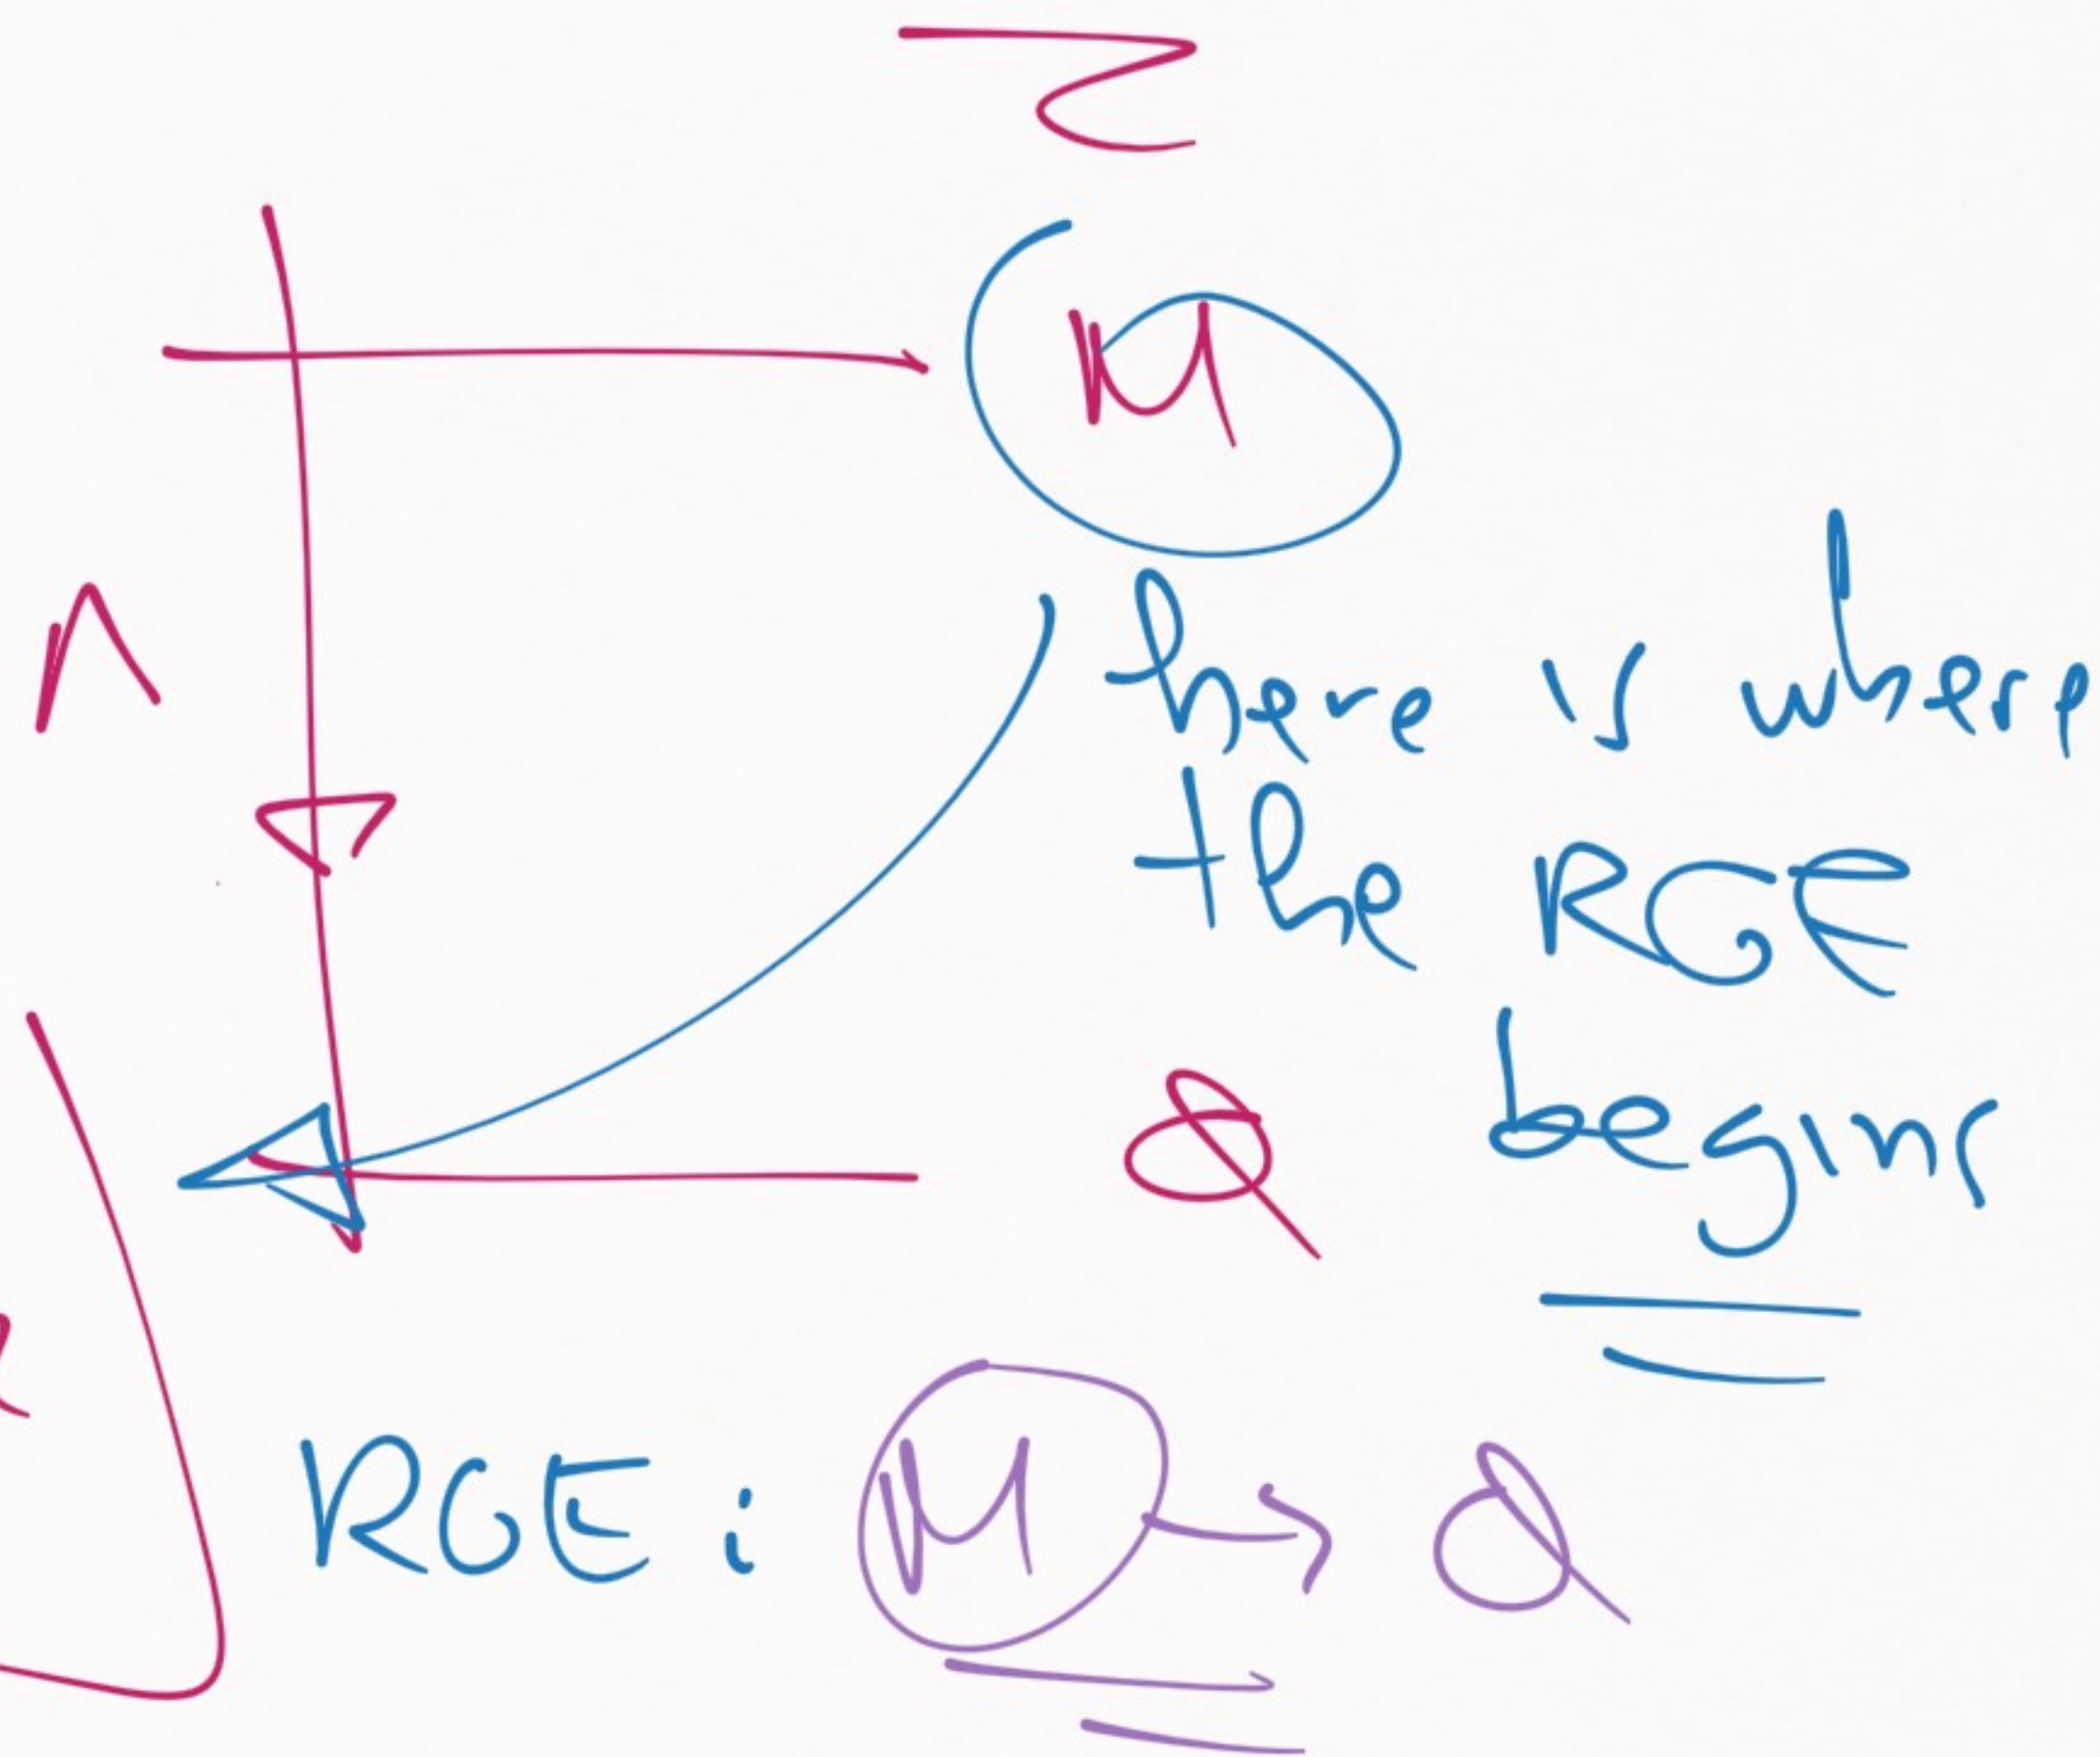 M
here is where
the RGE
Q begins
RGE : M → Q